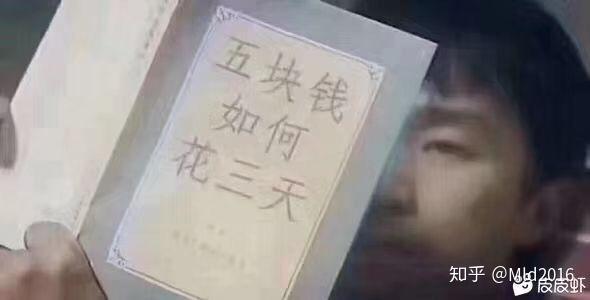 五块钱
如何
花三天
知乎 @Mld2016
皮皮虾